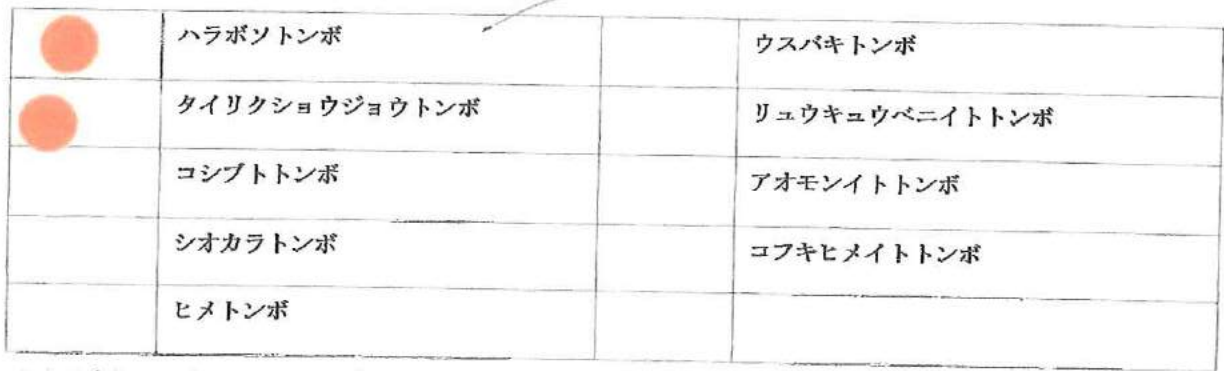 ハラボソトンボ
ウスバキトンボ
タイリクショウジョウトンボ
リュウキュウベニイトトンボ
コシブトトンボ
アオモンイトトンボ
シオカラトンボ
コフキヒメイトトンボ
ヒメトンボ